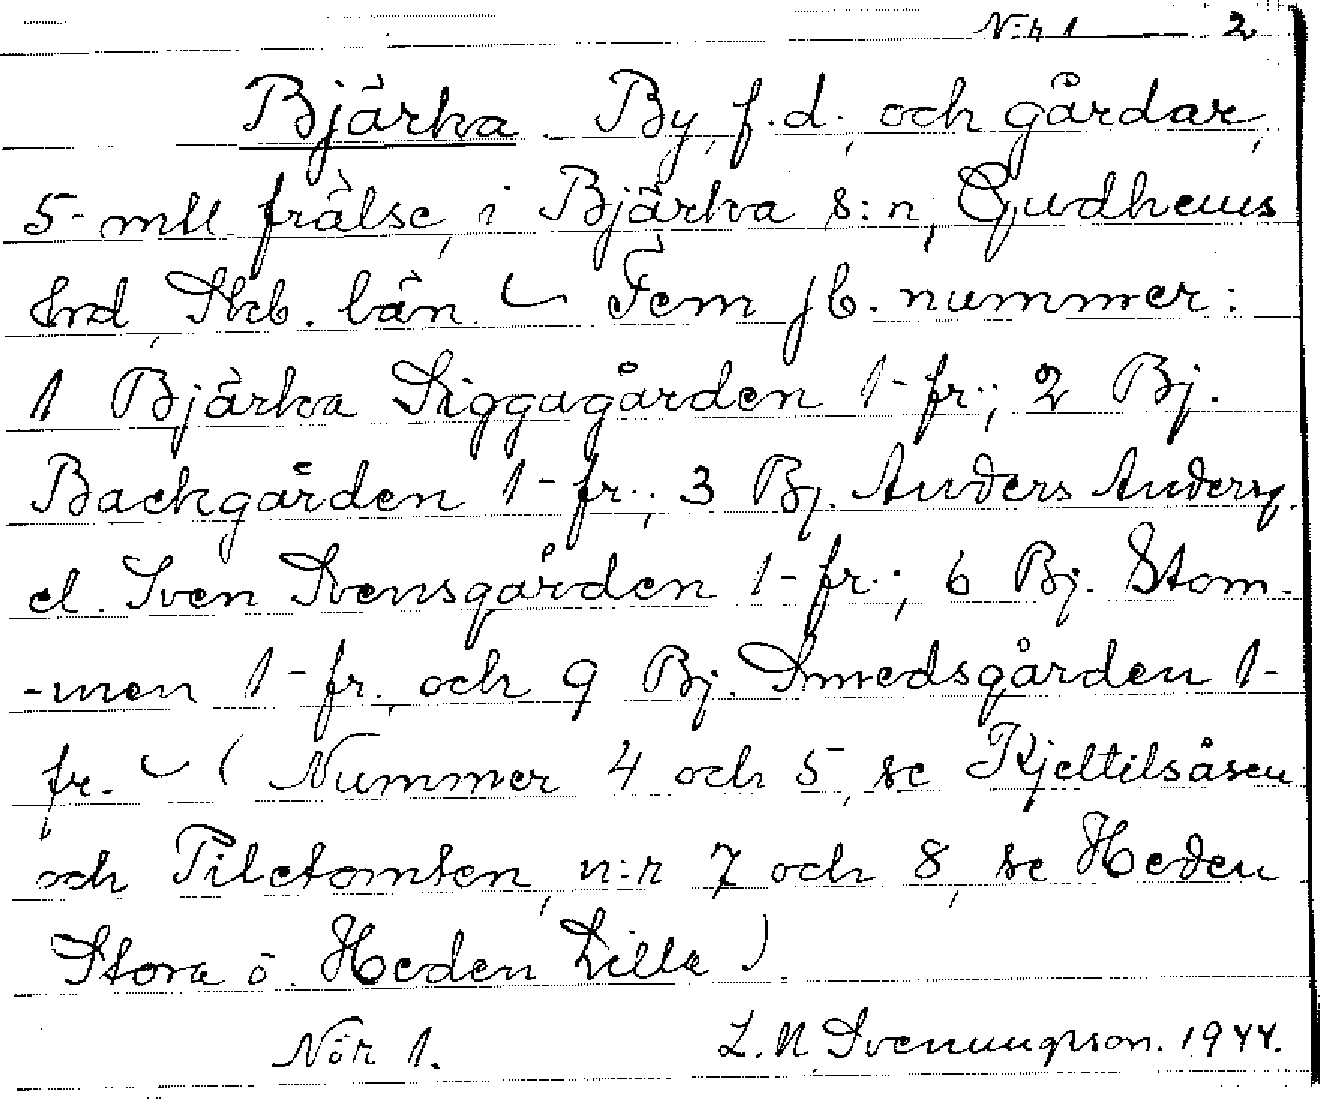 N:r 1 2
Bjärka - By, f.d., och gårdar,
5-mtl frälse, i Bjärka s:n, Gudhems
hrd, Skb. län. - Fem jb. nummer:
1 Bjärka Siggagården 1-fr.; 2 Bj.
Backgården 1-fr.; 3 Bj. Anders Andersg.
el. Sven Svensgården 1-fr.; 6 Bj. Stom-
-men 1-fr. och 9 Bj. Smedsgården 1-
fr. - (Nummer 4 och 5, se Kjeltilsåsen
och Tiletomten, n:r 7 och 8, se Heden
Stora o. Heden Lilla).
Nör 1. L. N. Svenungsson. 1944.